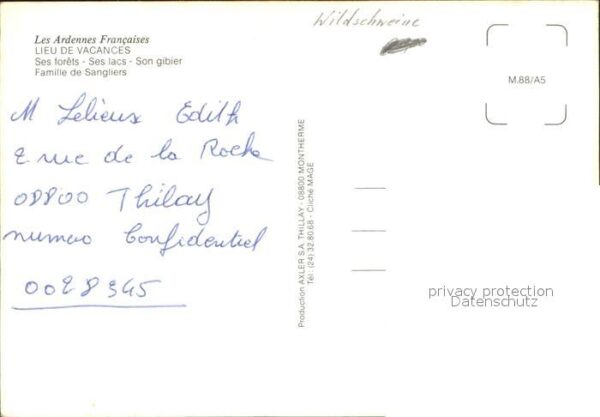 Wildschweine
Les Ardennes Françaises
LIEU DE VACANCES
Ses forêts - Ses lacs - Son gibier
Famille de Sangliers
M.88/A5
M Lelieux Edith
2 rue de la Roche
08800 Thilay
numero Confidentiel
0028345
Production AXLER S.A. THILLAY - 08800 MONTHERME
Tél.: (24) 32.80.68 - Cliché MAGE
privacy protection
Datenschutz